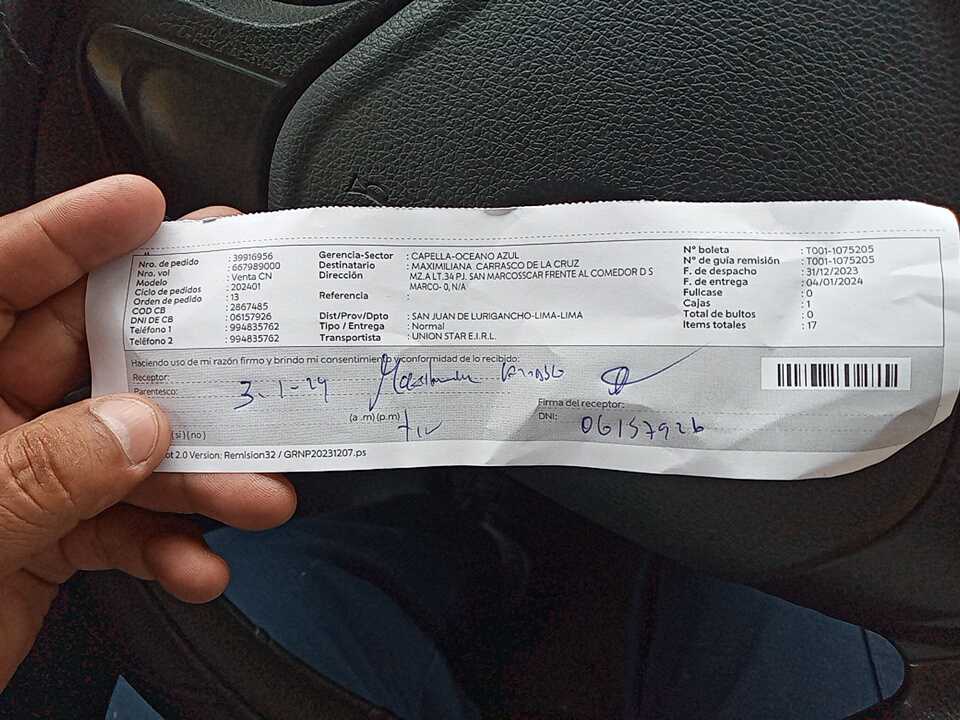 Nro. de pedido : 39916956
Nro. vol : 667989000
Modelo : Venta CN
Ciclo de pedidos : 202401
Orden de pedido : 13
COD CB : 2867485
DNI DE CB : 06157926
Teléfono 1 : 994835762
Teléfono 2 : 994835762
Gerencia-Sector : CAPELLA-OCEANO AZUL
Destinatario : MAXIMILIANA CARRASCO DE LA CRUZ
Dirección : MZ.A LT.34 PJ. SAN MARCOSSCAR FRENTE AL COMEDOR D S
MARCO- 0, N/A
Referencia :
Dist/Prov/Dpto : SAN JUAN DE LURIGANCHO-LIMA-LIMA
Tipo / Entrega : Normal
Transportista : UNION STAR E.I.R.L.
N° boleta : T001-1075205
N° de guía remisión : T001-1075205
F. de despacho : 31/12/2023
F. de entrega : 04/01/2024
Fullcase : 0
Cajas : 1
Total de bultos : 0
Items totales : 17
Haciendo uso de mi razón firmo y brindo mi consentimiento y conformidad de lo recibido:
Receptor:
Parentesco:
3-1-24
(a .m) (p.m)
Firma del receptor:
DNI: 06157926
( si ) ( no )
2.0 Version: Remision32 / GRNP20231207.ps